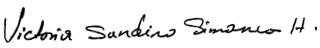 Victoria Sandino Simanca H.